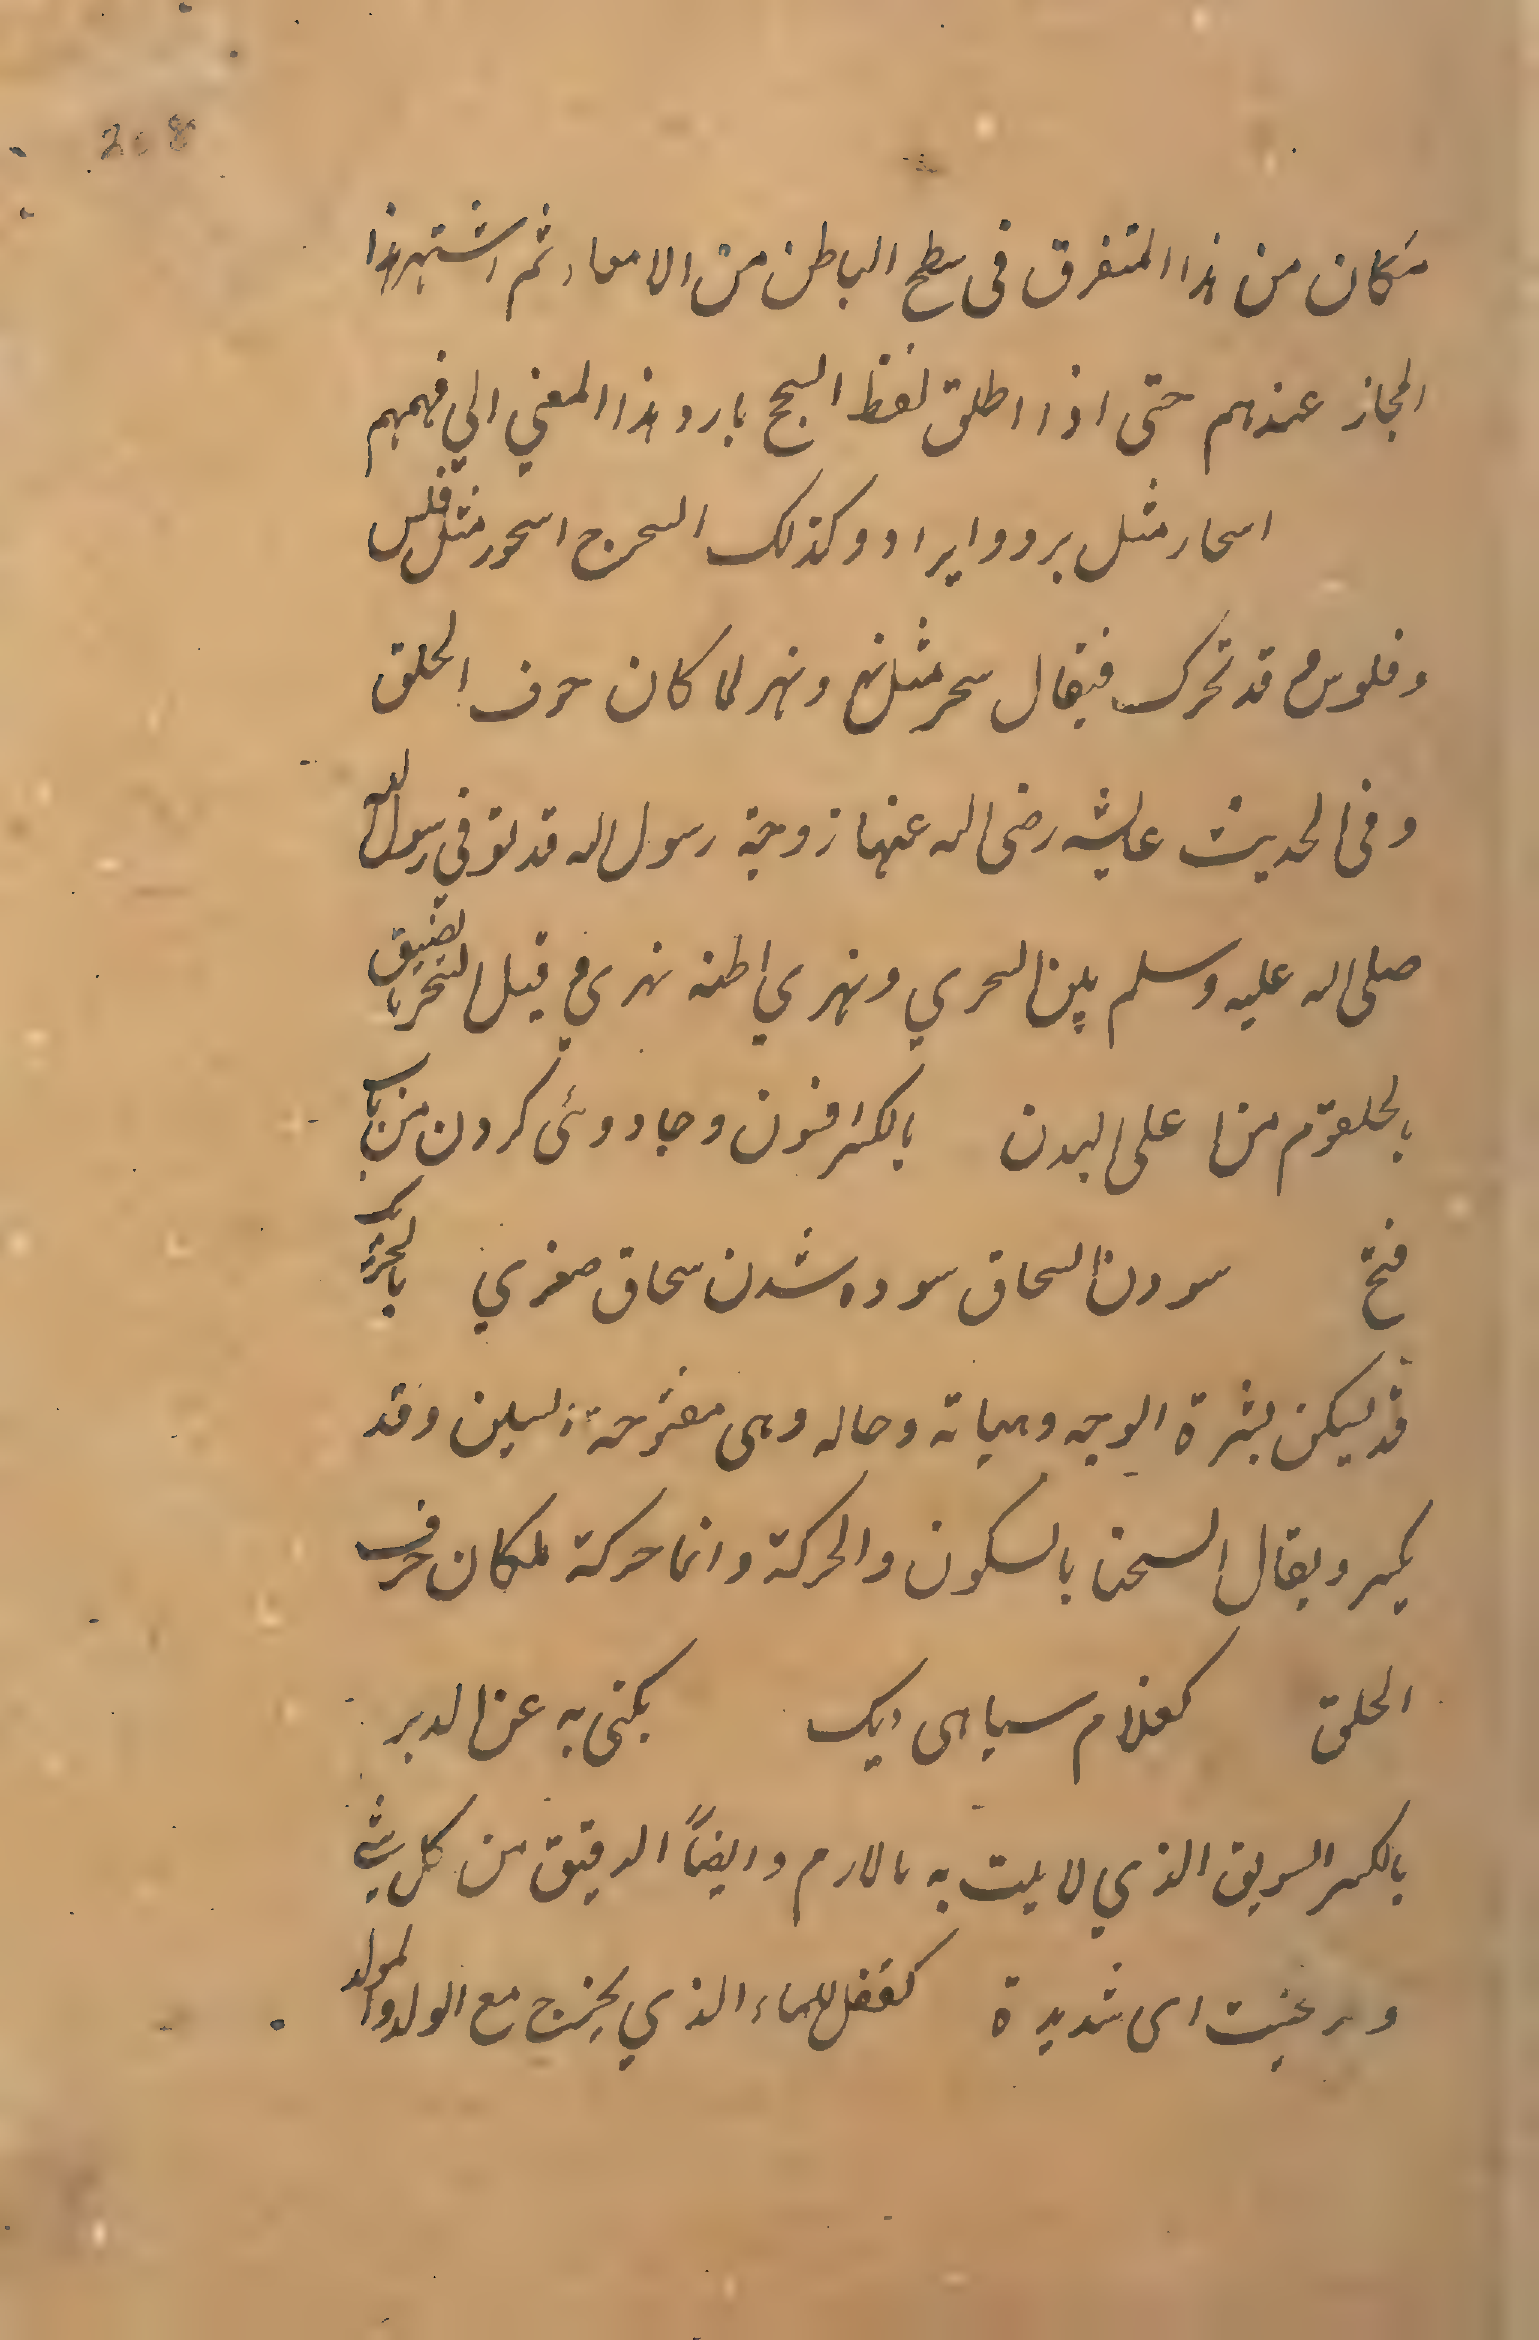 208
مكان من هذا المتفرق فى سطح الباطن من الامعاء ثم اشتهر هذا
المجاز عندهم حتى اذا اطلق لفظ السحج بارد هذا المعني الي فهمهم
اسحار مثل برد وابراد وكذلك السحر ج اسحور مثل فلس
وفلوس وقد تحرك فيقال سحر مثل نهر ونهر لما كان حرف الحلق
وفى الحديث عايشه رضى الله عنها زوجة رسول الله قد توفي رسول الله
صلى الله عليه وسلم بين السحري ونهري اطنه نهري و قيل السحر ما لضيق
بالحلقوم من اعلى البدن بالكسر افسون وجادوئى كردن من باب
فتح سودن السحاق سوده شدن سحاق صغري بالتحرك
قد ليكن بشرة الوجه وهياته وحاله وهى مفتوحة السين وقد
يكسر ويقال السحنا بالسكون والحركة وانما حركة لمكان حرف
الحلق كغلام سياهى ديك يكنى به عن الدبر
بالكسر السويق الذي لا يلت به بالادم وايضاً الدقيق من كل شي
كقفل للماء الذي يخرج مع الولد والمولد